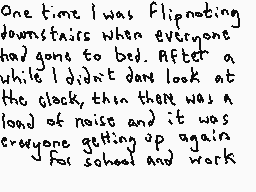 One time I was flipnoting
downstairs when everyone
had gone to bed. After a
while I didn't dare look at
the clock, then there was a
load of noise and it was
everyone getting up again
for school and work